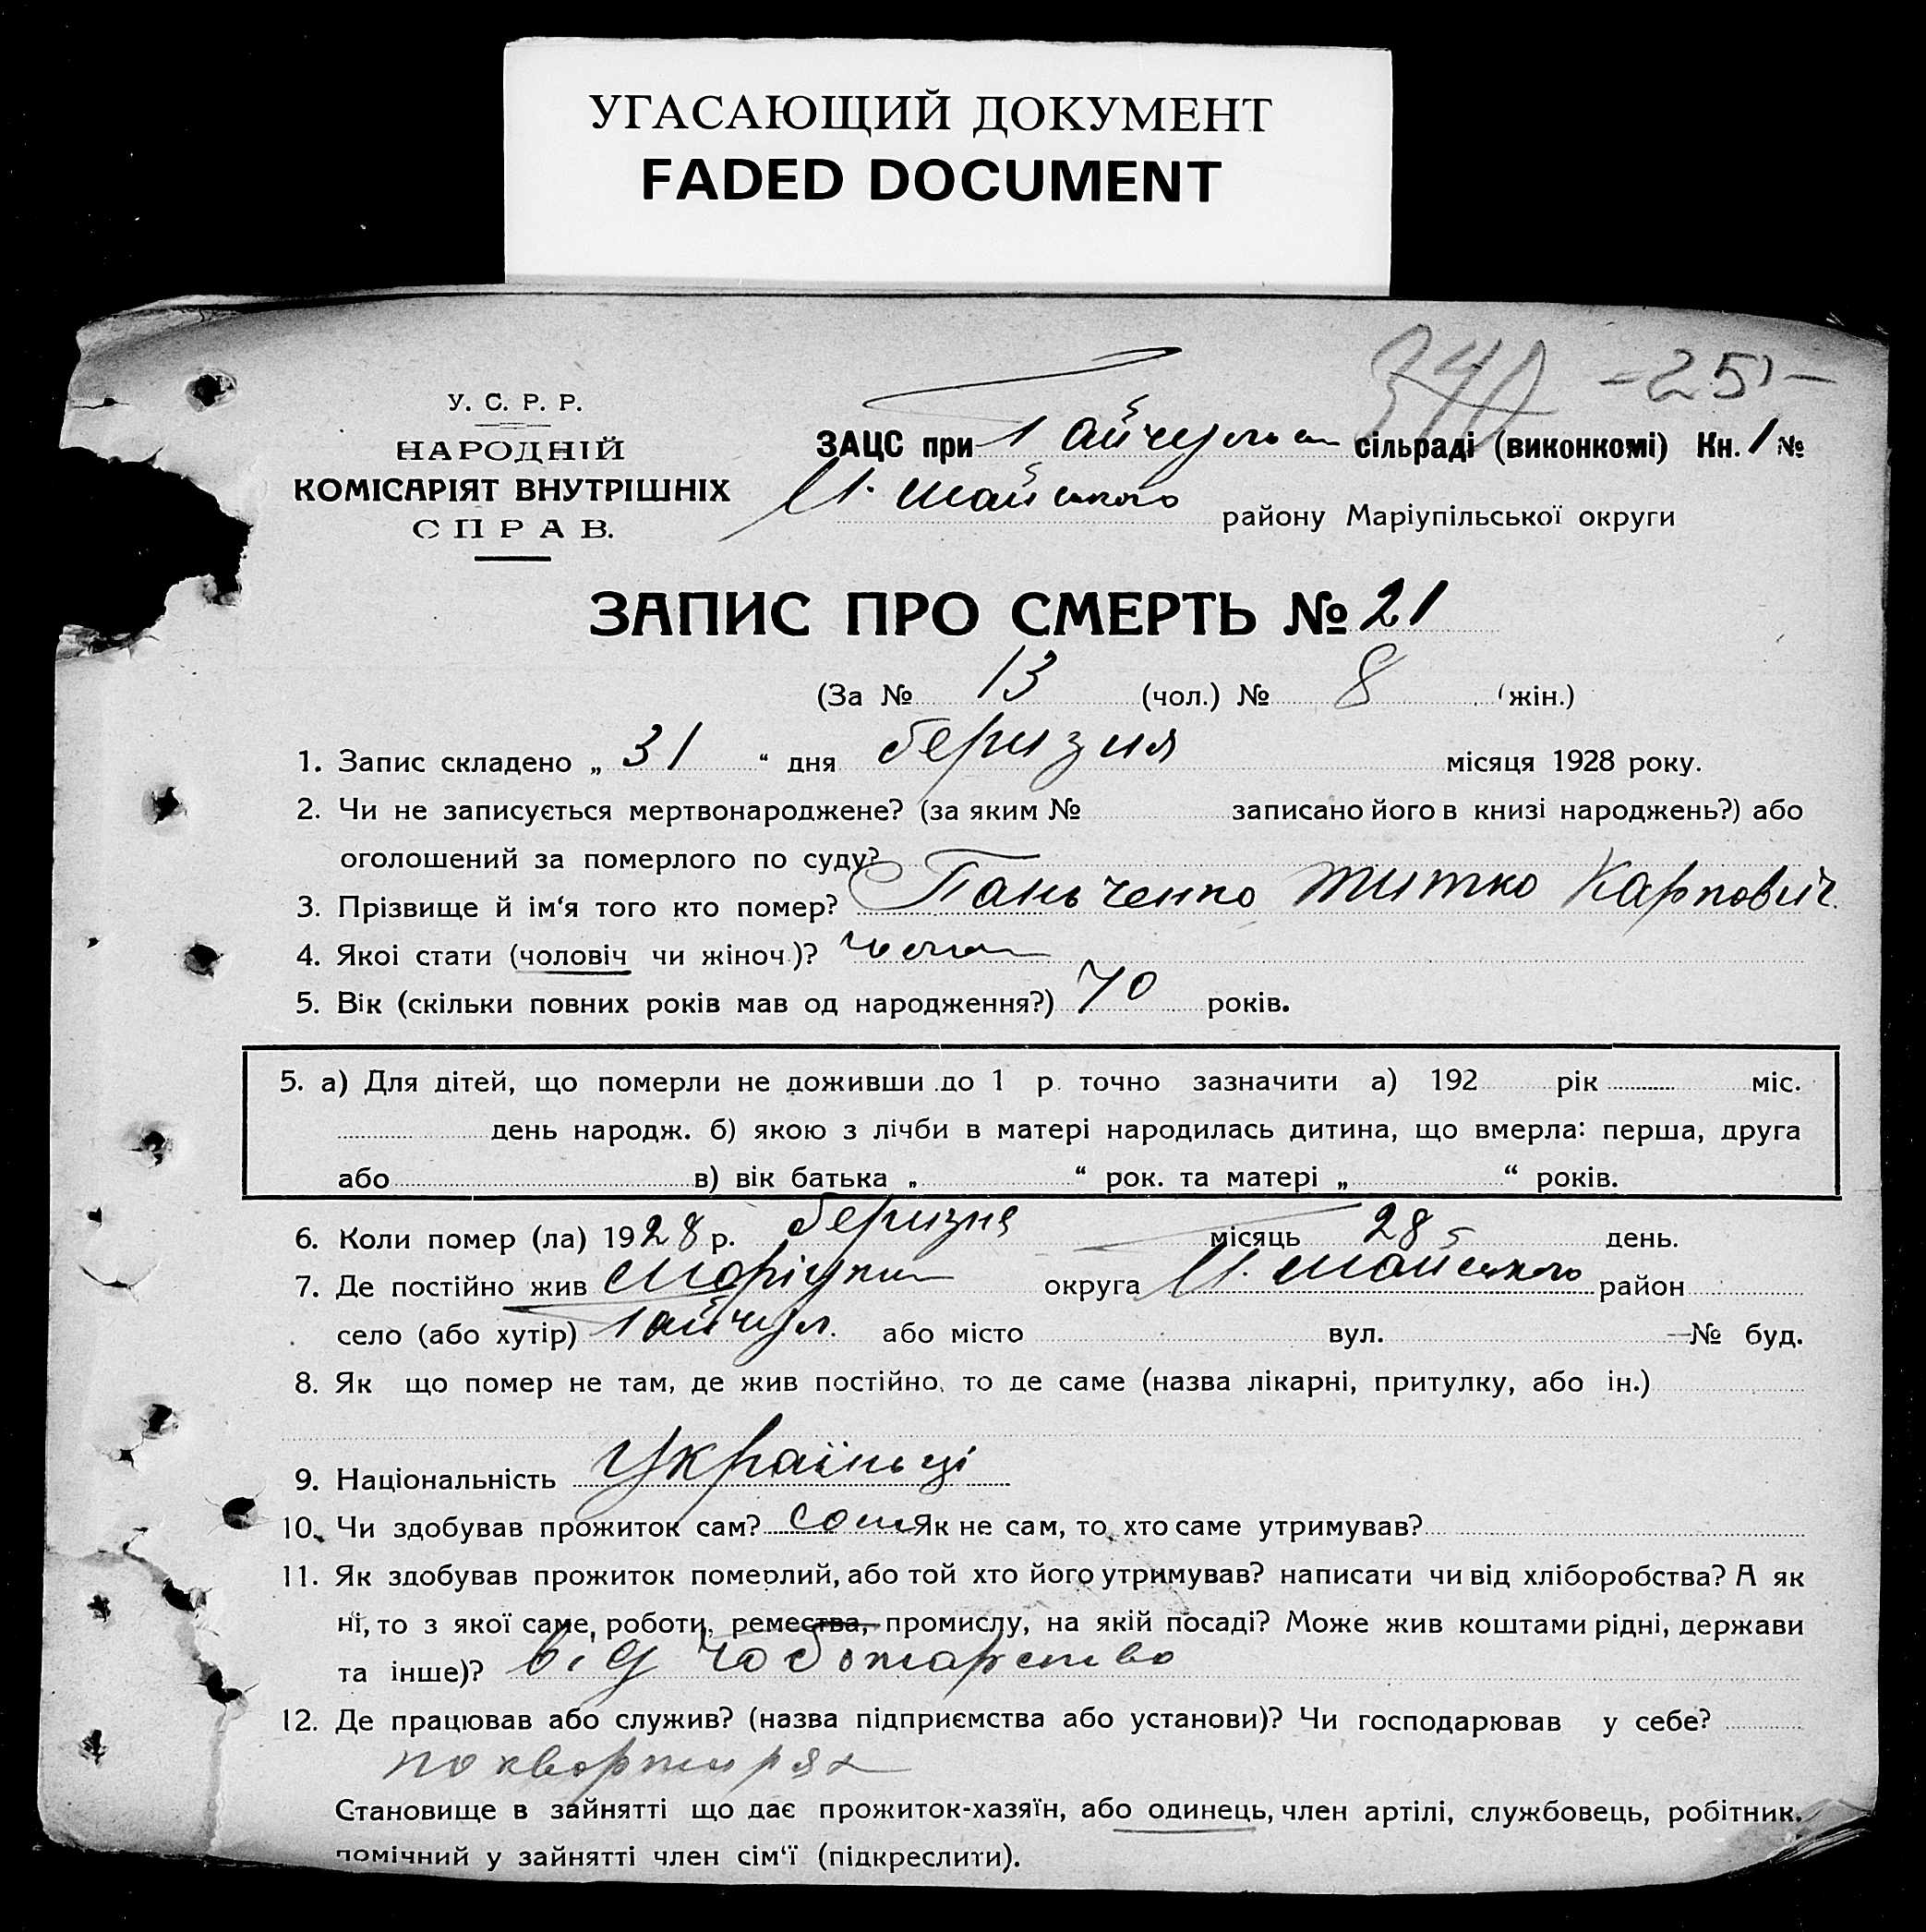 УГАСАЮЩИЙ ДОКУМЕНТ
FADED DOCUMENT
340 -25-
У. С. Р. Р.
НАРОДНІЙ
КОМІСАРІЯТ ВНУТРІШНІХ
СПРАВ.
ЗАЦС при Гайчульськ сільраді (виконкомі) Кн. 1 №
М. Майського району Маріупільської округи
ЗАПИС ПРО СМЕРТЬ № 21
(За № 13 (чол.) № 8 (жін.)
1. Запис складено „ 31 “ дня беризня місяця 1928 року.
2. Чи не записується мертвонароджене? (за яким № записано його в книзі народжень?) або
оголошений за померлого по суду?
3. Прізвище й ім‘я того кто помер? Паньченко Титко Карпович
4. Якоі стати (чоловіч чи жіноч.)?
5. Вік (скільки повних років мав од народження?) 70 років.
5. а) Для дітей, що померли не доживши до 1 р. точно зазначити а) 192 рік міс.
день народж. б) якою з лічби в матері народилась дитина, що вмерла: перша, друга
або в) вік батька „ “ рок. та матері „ “ років.
6. Коли помер (ла) 1928 р. беризня місяць 28 день.
7. Де постійно жив Маріупил округа М. Майського район
село (або хутір) Гайчул. або місто вул. № буд.
8. Як що помер не там, де жив постійно, то де саме (назва лікарні, притулку, або ін.)
9. Національність Україньці
10. Чи здобував прожиток сам? сам Як не сам, то хто саме утримував?
11. Як здобував прожиток померлий, або той хто його утримував? написати чи від хліборобства? А як
ні, то з якої саме, роботи, ремества, промислу, на якій посаді? Може жив коштами рідні, держави
та інше)? від чоботарство
12. Де працював або служив? (назва підприємства або установи)? Чи господарював у себе?
по квартирях
Становище в зайнятті що дає прожиток-хазяїн, або одинець, член артілі, службовець, робітник.
помічний у зайнятті член сім‘ї (підкреслити).